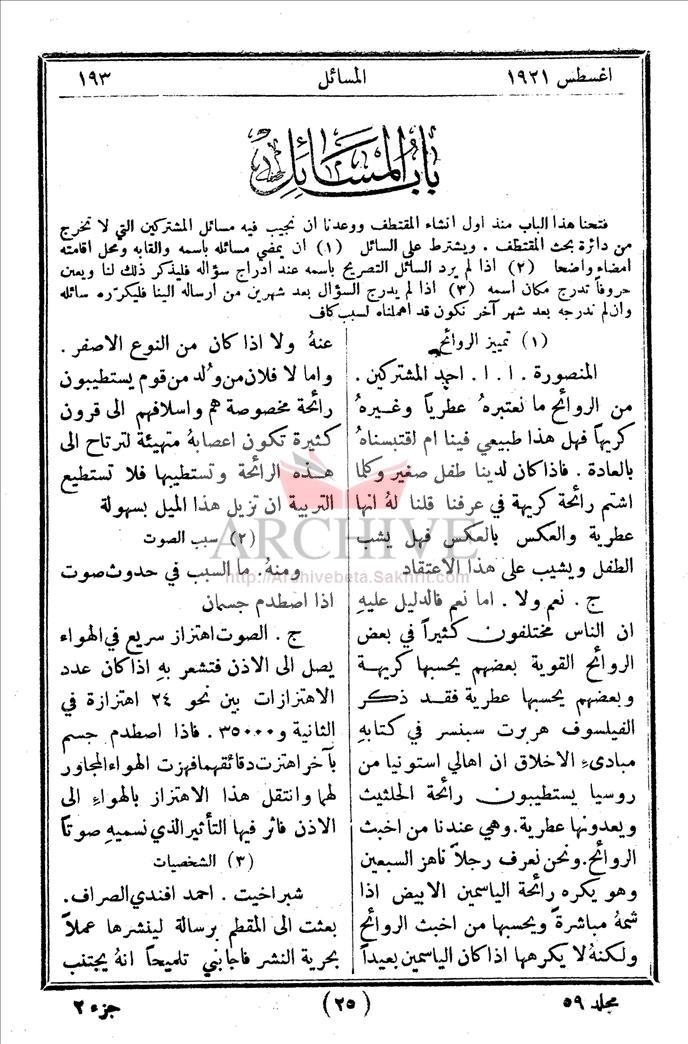 اغسطس ١٩٢١ المسائل ١٩٣
باب المسائل
فتحنا هذا الباب منذ اول انشاء المقتطف ووعدنا ان نجيب فيه مسائل المشتركين التي لا تخرج
من دائرة بحث المقتطف . ويشترط على السائل (١) ان يمضي مسائله باسمه والقابه ومحل اقامته
امضاء واضحا (٢) اذا لم يرد السائل التصريح باسمه عند ادراج سؤاله فليذكر ذلك لنا ويعين
حروفاً تدرج مكان اسمه (٣) اذا لم يدرج السؤال بعد شهرين من ارساله الينا فليكرّره سائله
وان لم ندرجه بعد شهر آخر نكون قد اهملناه لسبب كاف
(١) تمييز الروائح
المنصورة . ا . ا . احد المشتركين .
من الروائح ما نعتبرهُ عطرياً وغيرهُ
كريهاً فهل هذا طبيعي فينا ام اقتبسناهُ
بالعادة . فاذا كان لدينا طفل صغير وكلما
اشتم رائحة كريهة في عرفنا قلنا لهُ انها
عطرية والعكس بالعكس فهل يشب
الطفل ويشيب على هذا الاعتقاد
ج . نعم ولا . اما نعم فالدليل عليهِ
ان الناس مختلفون كثيراً في بعض
الروائح القوية بعضهم يحسبها كريهة
وبعضهم يحسبها عطرية فقد ذكر
الفيلسوف هربرت سبنسر في كتابهِ
مبادىء الاخلاق ان اهالي استونيا من
روسيا يستطيبون رائحة الحلثيت
ويعدونها عطرية . وهي عندنا من اخبث
الروائح . ونحن نعرف رجلاً ناهز السبعين
وهو يكره رائحة الياسمين الابيض اذا
شمهُ مباشرةً ويحسبها من اخبث الروائح
ولكنهُ لا يكرهها اذا كان الياسمين بعيداً
عنهُ ولا اذا كان من النوع الاصفر .
واما لا فلان من وُلد من قوم يستطيبون
رائحة مخصوصة هم واسلافهم الى قرون
كثيرة تكون اعصابهُ متهيئة لترتاح الى
هذه الرائحة وتستطيبها فلا تستطيع
التربية ان تزيل هذا الميل بسهولة
(٢) سبب الصوت
ومنهُ . ما السبب في حدوث صوت
اذا اصطدم جسمان
ج . الصوت اهتزاز سريع في الهواء
يصل الى الاذن فتشعر بهِ اذا كان عدد
الاهتزازات بين نحو ٢٤ اهتزازة في
الثانية و ٣٥٠٠٠ . فاذا اصطدم جسم
بآخر اهتزت دقائقهما فهزت الهواء المجاور
لهما وانتقل هذا الاهتزاز بالهواءِ الى
الاذن فاثر فيها التأثير الذي نسميهِ صوتاً
(٣) الشخصيات
شبراخيت . احمد افندي الصراف .
بعثت الى المقطم برسالة لينشرها عملاً
بحرية النشر فاجابني تلميحاً انهُ يجتنب
مجلد ٥٩ (٢٥) جزء ٢
ARCHIVE
http://Archivebeta.Sakhrit.com